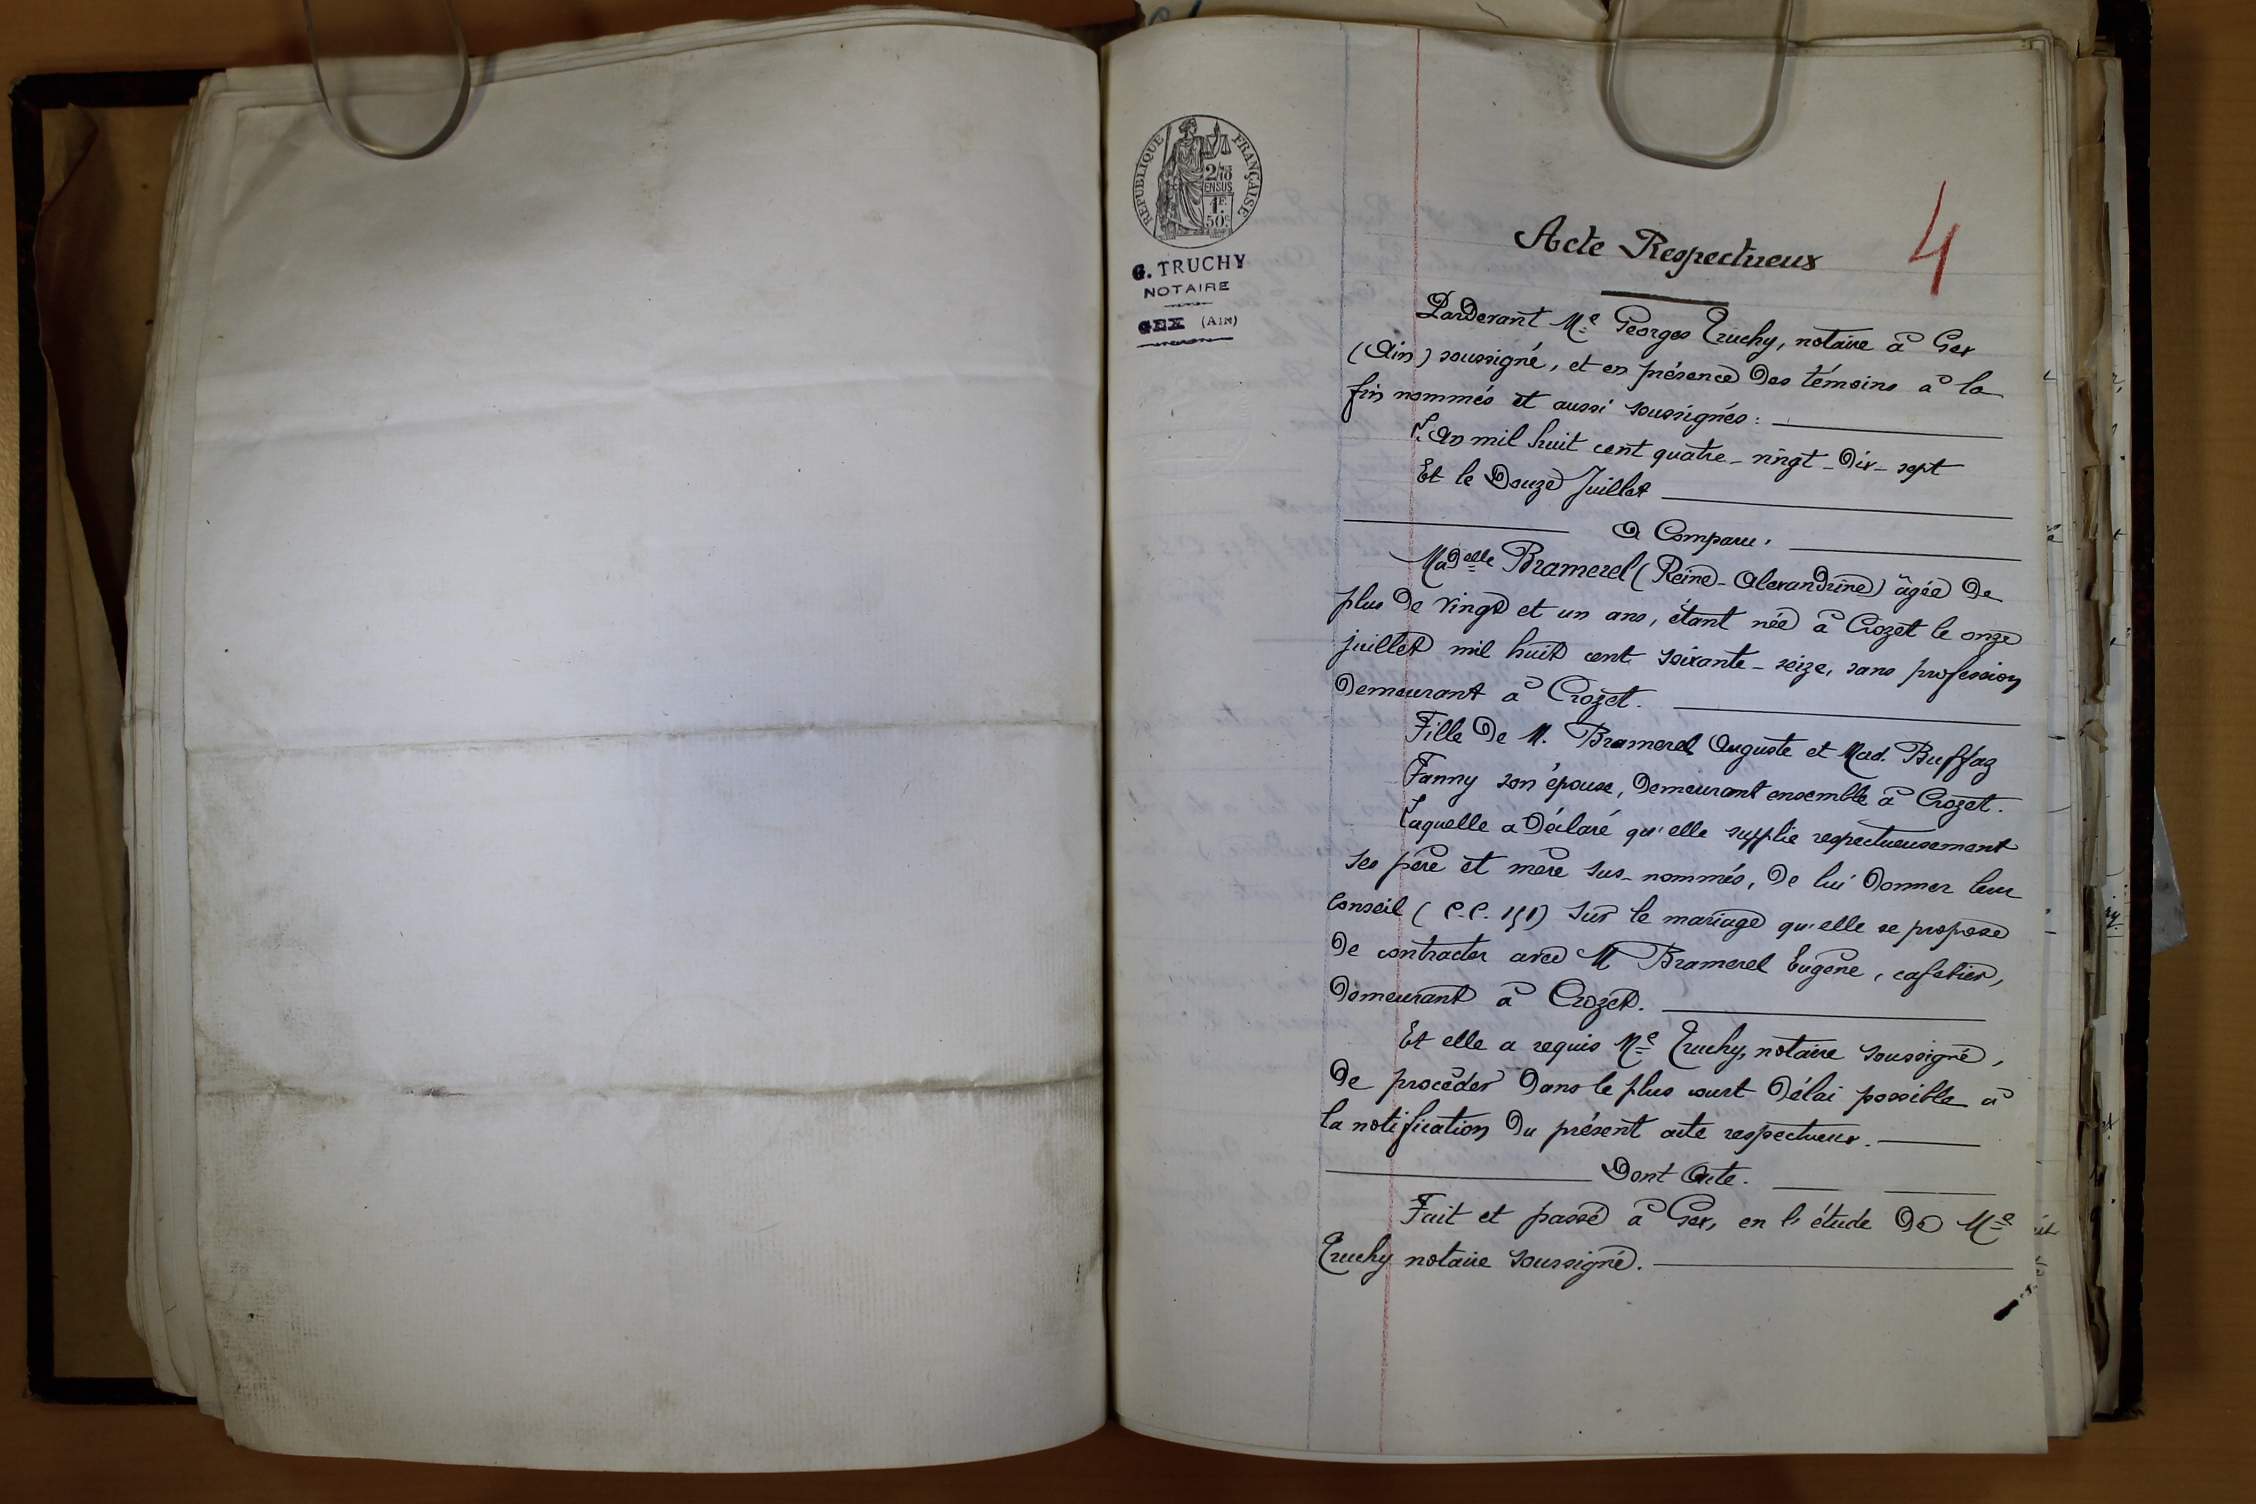 RÉPUBLIQUE FRANÇAISE
2/10
EN SUS
1F.
50c.
G. TRUCHY
NOTAIRE
GEX (AIN)
Acte Respectueux
4
Pardevant Me Georges Truchy, notaire à Gex
(Ain) soussigné, et en présence des témoins à la
fin nommés et aussi soussignés :
L'an mil huit cent quatre-vingt-dix-sept
Et le Douze Juillet
A Comparu :
Madelle Bramerel (Reine-Alexandrine) âgée de
plus de vingt et un ans, étant née à Crozet le onze
juillet mil huit cent soixante-seize, sans profession
demeurant à Crozet.
Fille de M. Bramerel Auguste et Mad. Buffaz
Fanny son épouse, demeurant ensemble à Crozet.
Laquelle a déclaré qu'elle supplie respectueusement
ses père et mère sus-nommés, de lui donner leur
conseil (C.C. 151) sur le mariage qu'elle se propose
de contracter avec M Bramerel Eugène, cafetier,
demeurant à Crozet.
Et elle a requis Me Truchy, notaire soussigné,
de procéder dans le plus court délai possible à
la notification du présent acte respectueux.
Dont Acte.
Fait et passé à Gex, en l'étude de Me
Truchy notaire soussigné.